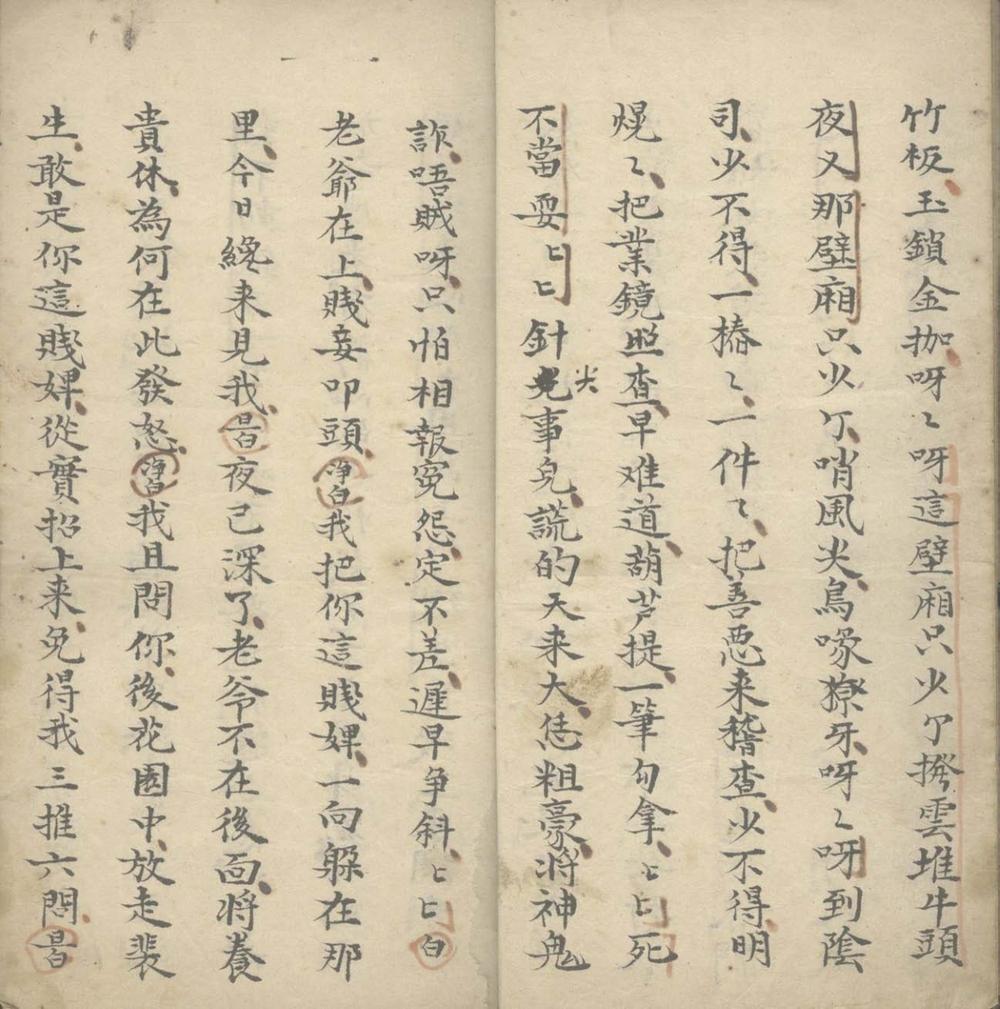 竹板玉鎖金枷呀〻呀這壁廂只少个撥雲堆牛頭
夜叉那壁廂只少个哨風尖鳥喙獠牙呀〻呀到陰
司少不得一樁〻一件〻把善惡来稽查少不得明
熀〻把業鏡照查早难道葫芦提一筆勾拿〻〻死
不當耍〻〻針尖事兒謊的天来大恁粗豪将神鬼
詐唔賊呀只怕相報寃怨定不差遲早争斜〻〻白
老爺在上賤妾叩頭淨白我把你這賤婢一向躲在那
里今日纔来見我旦白夜已深了老爷不在後面将養
貴体為何在此發怒淨白我且問你後花園中放走裴
生敢是你這賤婢從實招上来免得我三推六問旦白